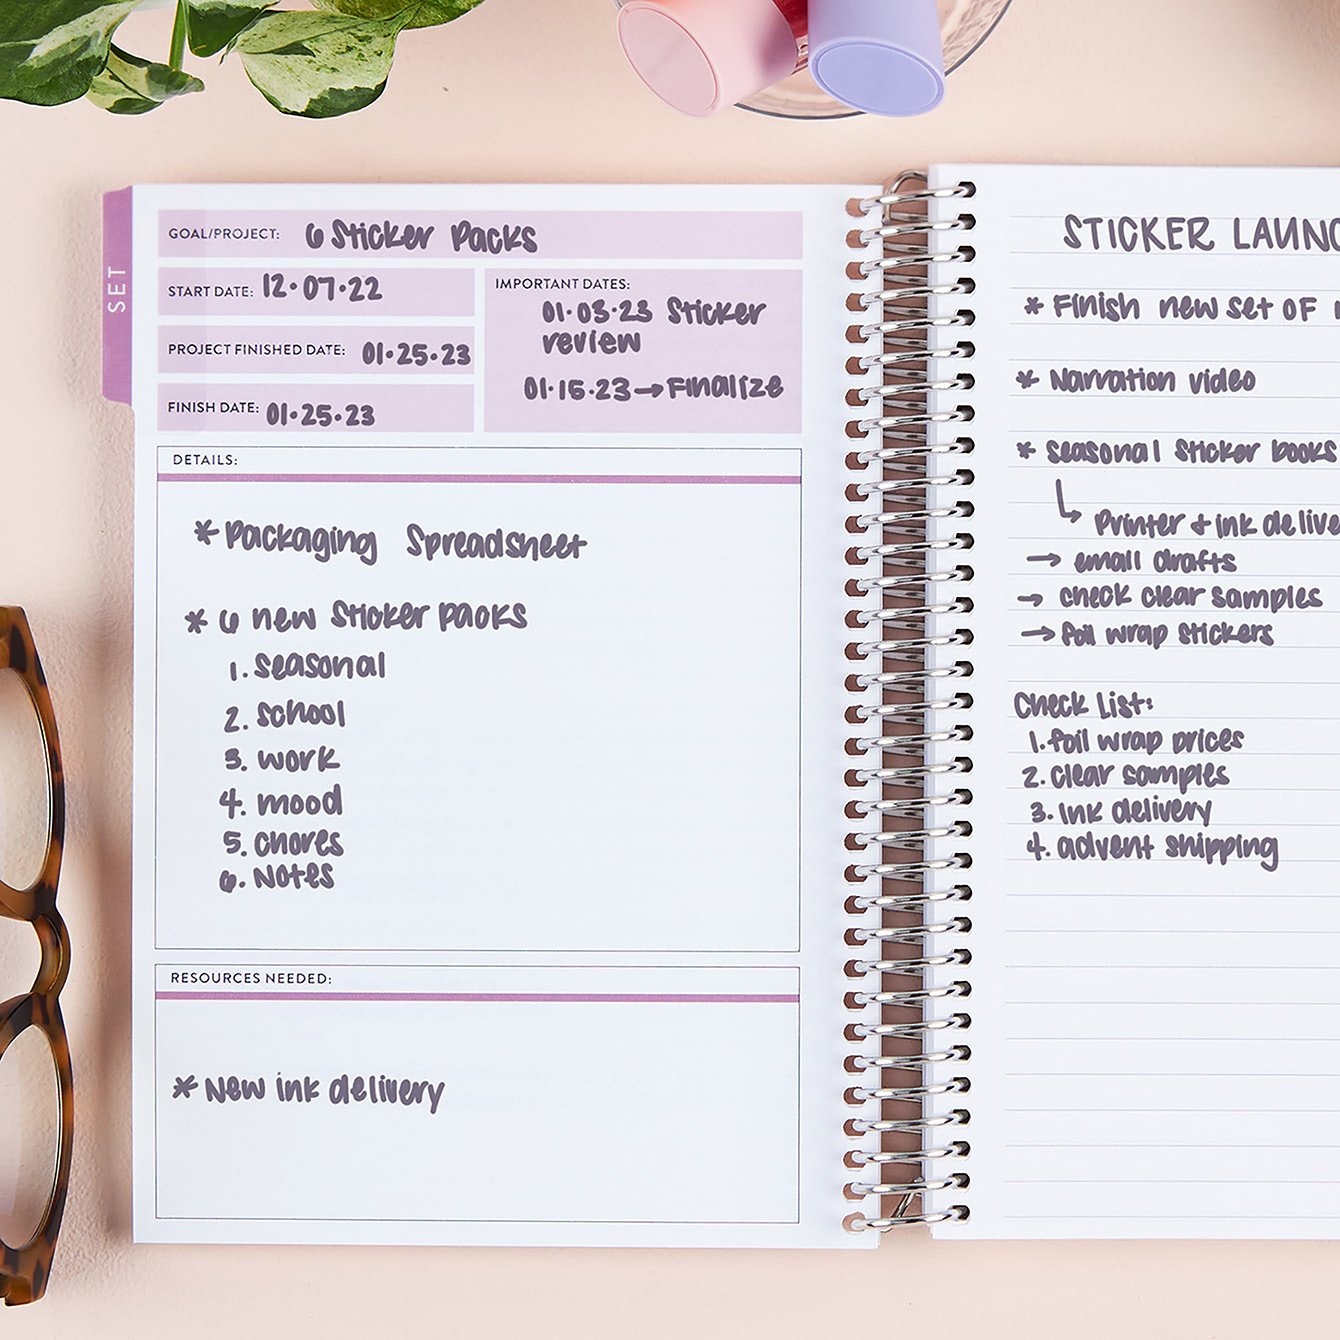 SET
GOAL/PROJECT: 6 Sticker Packs
START DATE: 12.07.22
PROJECT FINISHED DATE: 01.25.23
FINISH DATE: 01.25.23
IMPORTANT DATES:
01.03.23 Sticker
review
01.15.23→Finalize
DETAILS:
* Packaging Spreadsheet
* 6 new Sticker packs
1. seasonal
2. school
3. work
4. mood
5. chores
6. Notes
RESOURCES NEEDED:
* New ink delivery
STICKER
* Finish new set of
* Narration video
* seasonal sticker books
Printer + ink
→ email drafts
→ check clear samples
→ foil wrap stickers
Check List:
1. foil wrap prices
2. clear samples
3. ink delivery
4. advent shipping